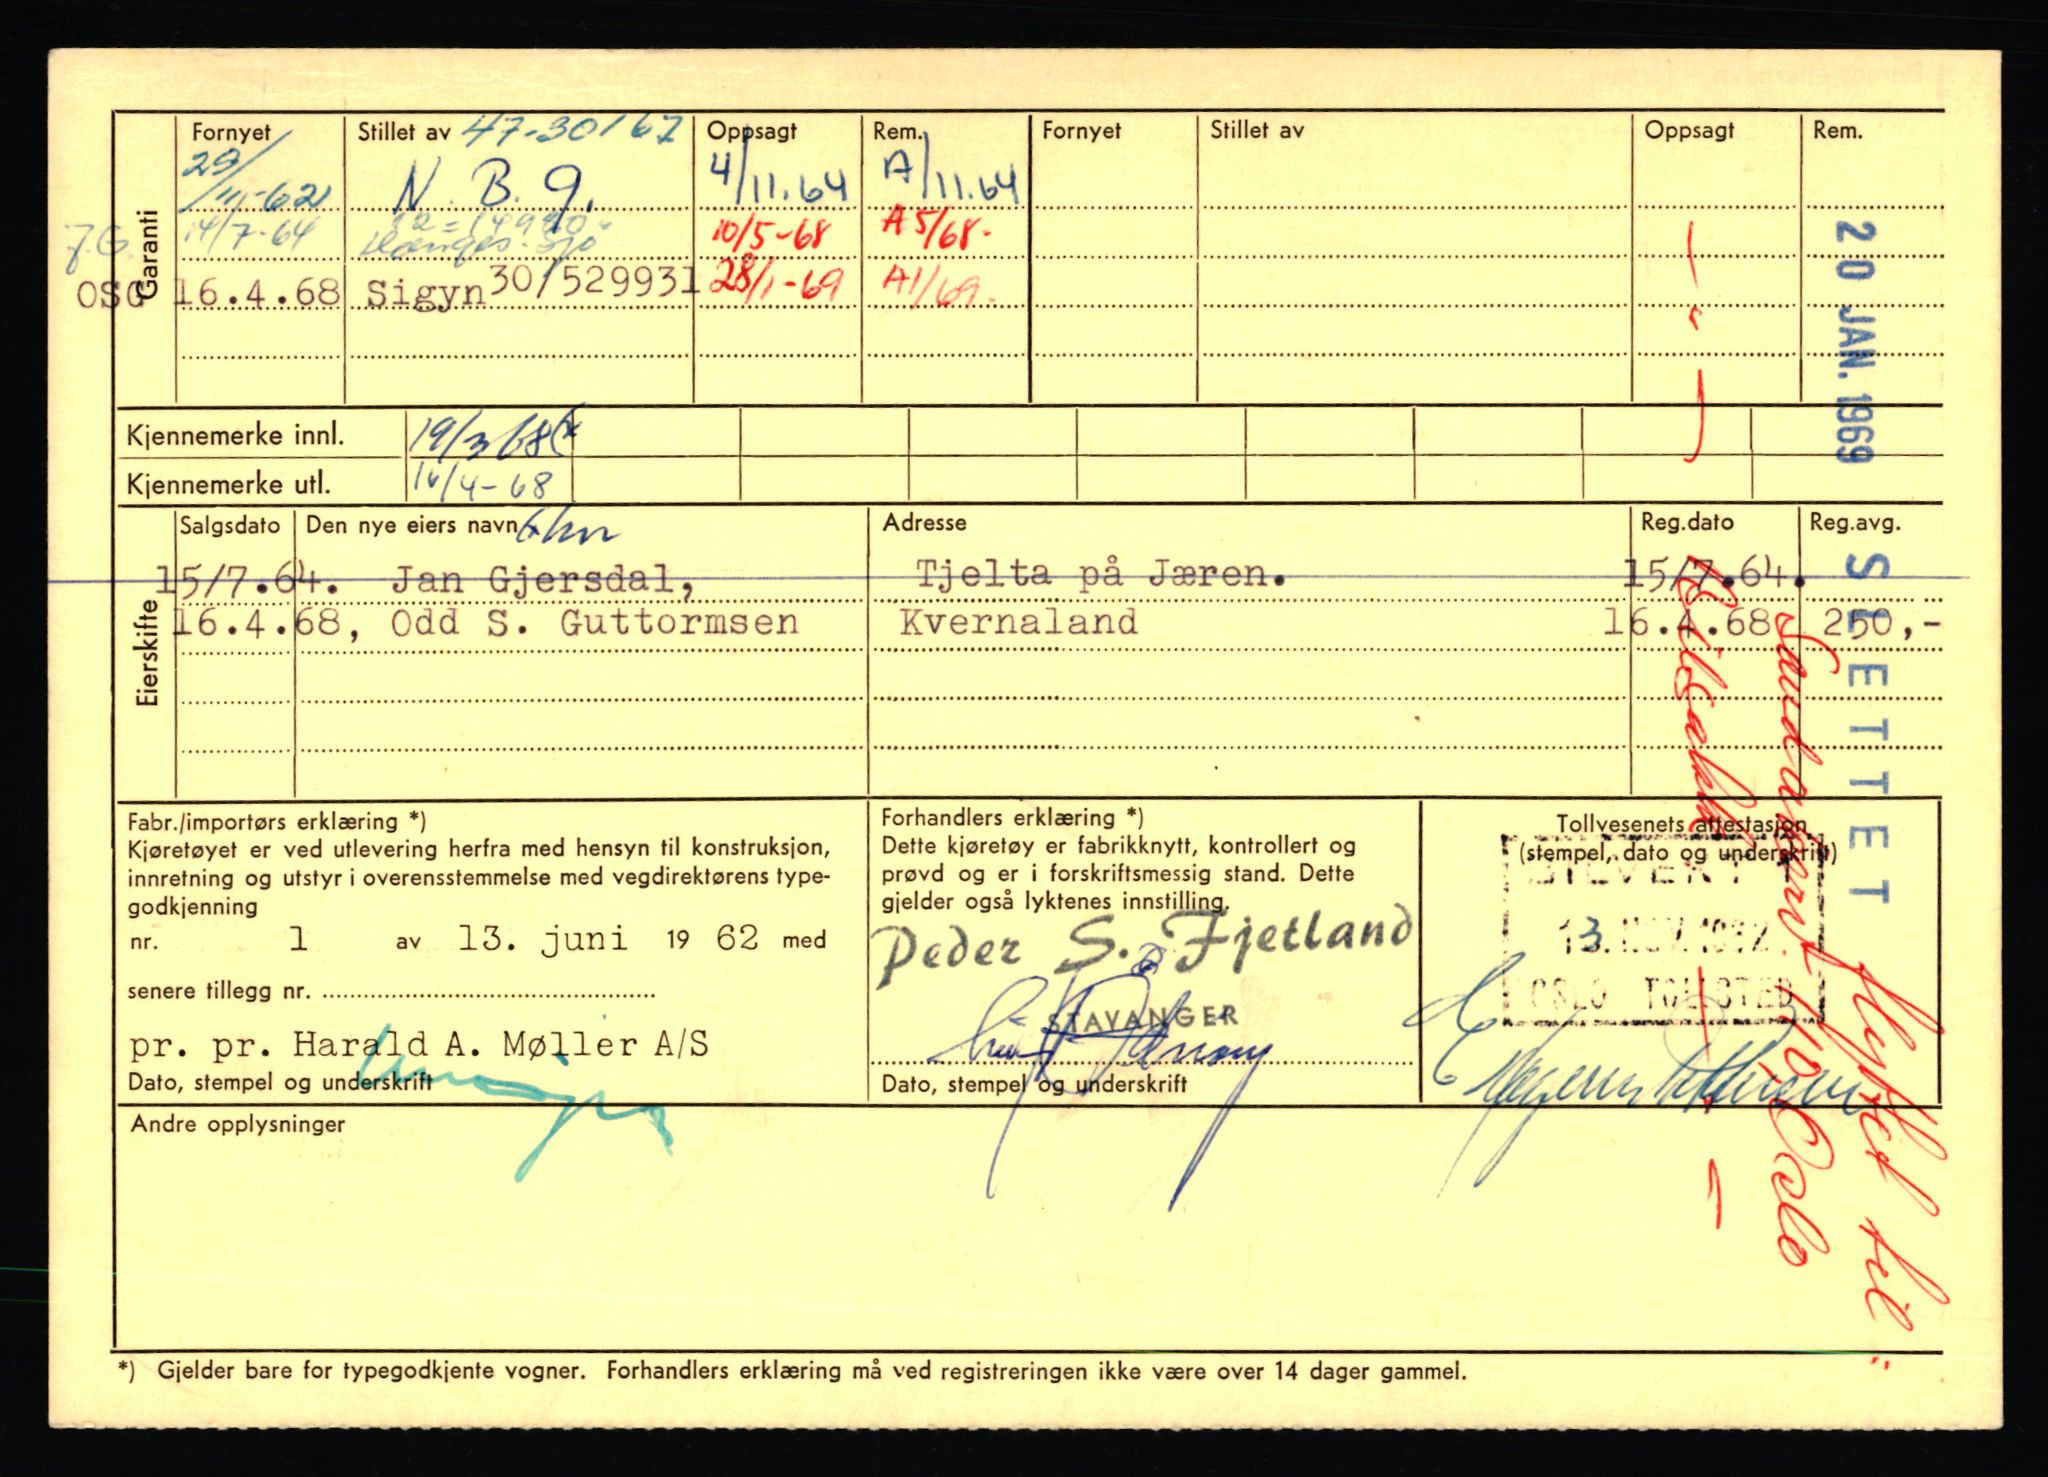 Garanti
Fornyet Stillet av 47-30/67 Oppsagt Rem. Fornyet Stillet av Oppsagt Rem.
29/11-62 N. B. 4/11.64 A/11.64
J.G. 14/7-64 10/5-68 A 5/68-
OSG 16.4.68 Sigyn 30/529931 28/1-69 A1/69-
Kjennemerke innl. 19/3 68
Kjennemerke utl. 16/4-68
Eierskifte
Salgsdato Den nye eiers navn Adresse Reg.dato Reg.avg.
15/7.64. Jan Gjersdal, Tjelta på Jæren. 15/7.64.
16.4.68, Odd S. Guttormsen Kvernaland 16.4.68 250,-
Fabr./importørs erklæring *)
Kjøretøyet er ved utlevering herfra med hensyn til konstruksjon,
innretning og utstyr i overensstemmelse med vegdirektørens type-
godkjenning
nr. 1 av 13. juni 19 62 med
senere tillegg nr.
pr. pr. Harald A. Møller A/S
Dato, stempel og underskrift
Forhandlers erklæring *)
Dette kjøretøy er fabrikknytt, kontrollert og
prøvd og er i forskriftsmessig stand. Dette
gjelder også lyktenes innstilling.
Peder S. Fjetland
STAVANGER
Dato, stempel og underskrift
Tollvesenets attestasjon
(stempel, dato og underskrift)
13. NOV. 1962
OSLO TOLLSTED
Andre opplysninger
*) Gjelder bare for typegodkjente vogner. Forhandlers erklæring må ved registreringen ikke være over 14 dager gammel.
20 JAN. 1969
SLETTET
flyttet til
Oslo